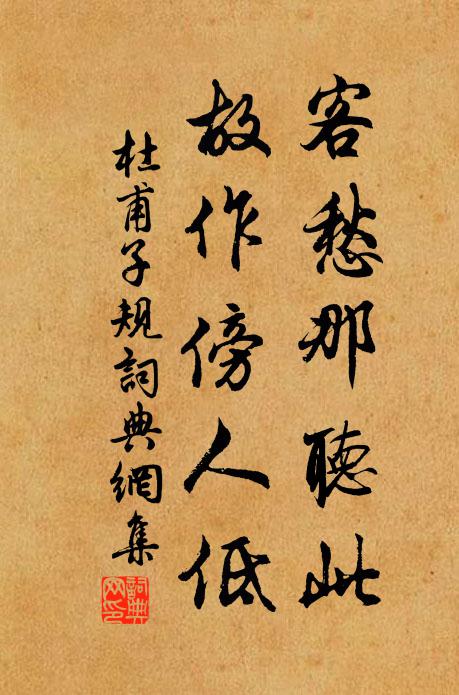 客愁那聽此
故作傍人低
杜甫子規詞典網集
詞典網印